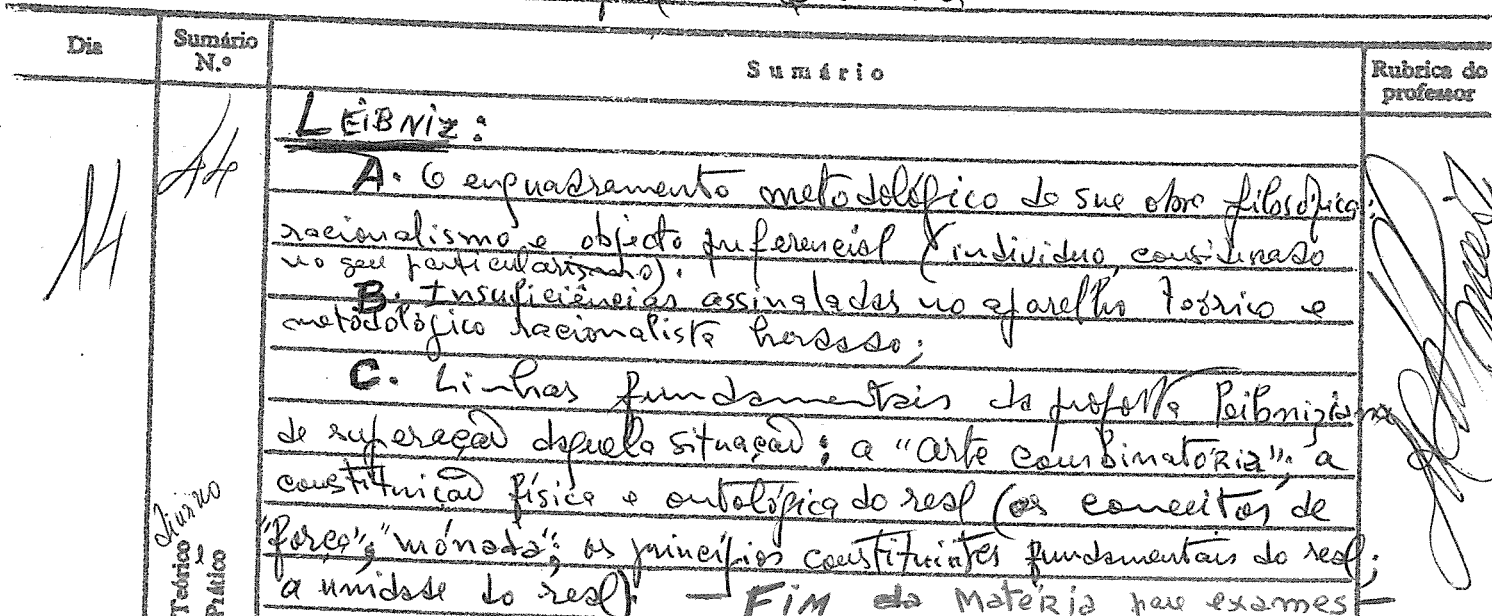 Dia
Sumário N.º
Sumário
Rubrica do professor
14
44
LEIBNIZ:
A. O enquadramento metodológico da sua obra filosófica:
racionalismo e objecto preferencial (indivíduo, considerado
no seu particularismo).
B. Insuficiências assinaladas no aparelho teórico e
metodológico racionalista herdado;
C. Linhas fundamentais da proposta leibniziana
de superação daquela situação: a "arte combinatória"; a
constituição física e ontológica do real (os conceitos de
"força"; "mónada"; os princípios constituintes fundamentais do real;
a unidade do real). — FIM da Matéria para exames —
Teórico
Prático